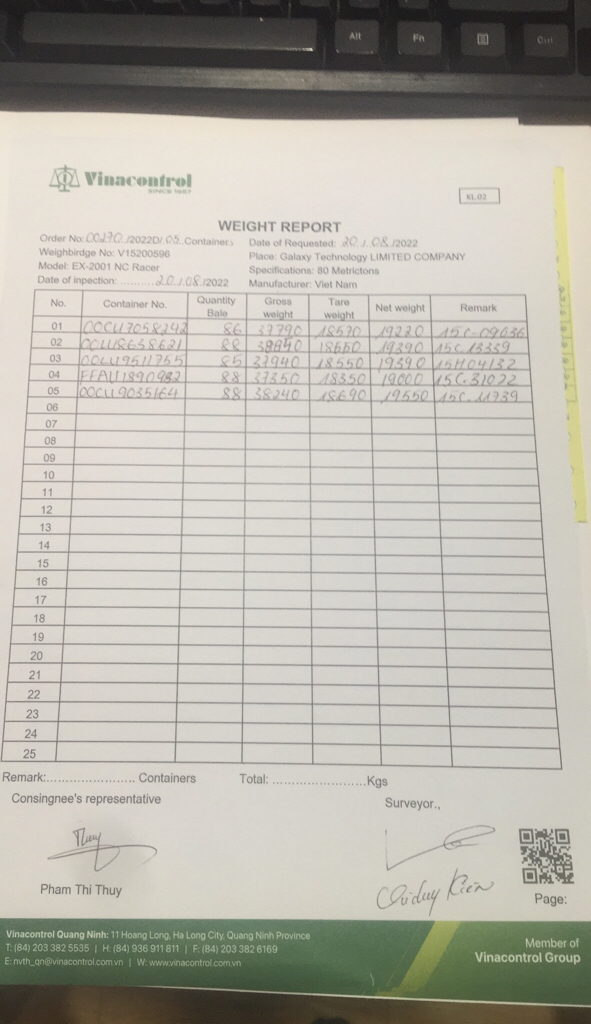 Alt
Fn
Ctrl
Vinacontrol
SINCE 1957
KL.03
WEIGHT REPORT
Order No: 00270 /2022D/ 05 Containers
Date of Requested: 20 / 08 /2022
Weighbirdge No: V15200596
Place: Galaxy Technology LIMITED COMPANY
Model: EX-2001 NC Racer
Specifications: 80 Metrictons
Date of inpection: .........20 / 08 /2022
Manufacturer: Viet Nam
No. Container No. Quantity Bale Gross weight Tare weight Net weight Remark
01 OOCU7058242 86 37790 18570 19220 15C-09036
02 88 18660 19390 15C 13339
03 85 37940 18550 19390 15H04132
04 FFAU1890982 88 37350 18350 19000 15C.31022
05 OOCU9035164 88 38240 18690 19550 15C.11739
06
07
08
09
10
11
12
13
14
15
16
17
18
19
20
21
22
23
24
25
Remark:....................... Containers Total: .........................Kgs
Consingnee's representative
Surveyor.,
Thuy
Pham Thi Thuy
Chi duy Kiên
Page:
Vinacontrol Quang Ninh: 11 Hoang Long, Ha Long City, Quang Ninh Province
T: (84) 203 382 5535 | H: (84) 936 911 811 | F: (84) 203 382 6169
E: nvth_qn@vinacontrol.com.vn | W: www.vinacontrol.com.vn
Member of
Vinacontrol Group